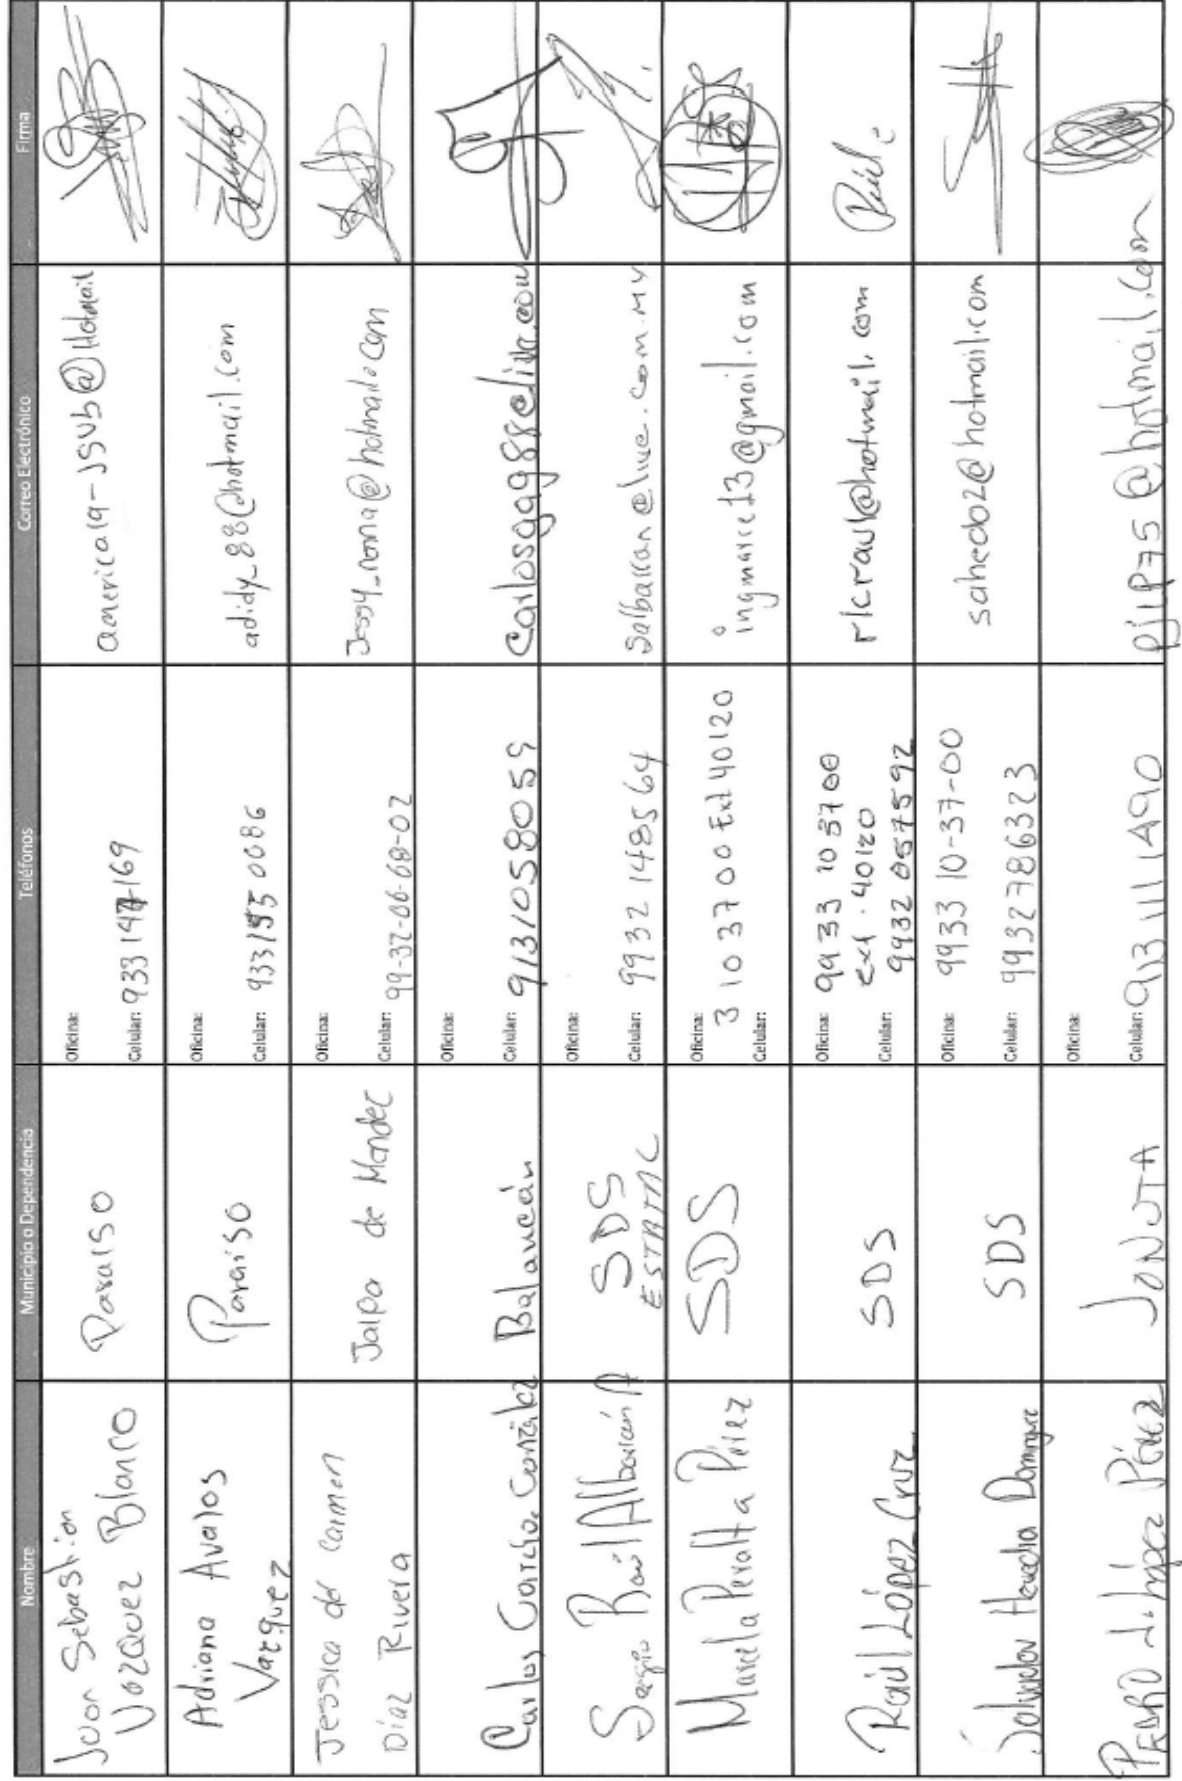 Nombre Municipio o Dependencia Teléfonos Correo Electrónico Firma
Juan Sebastian
Vazquez Blanco
Paraiso
Oficina:
Celular: 933 147169
america19-JSVB@Hotmail
Adriana Avalos
Vazquez
Paraiso
Oficina:
Celular: 933155 0086
adidy_88@hotmail.com
Jessica del carmen
Díaz Rivera
Jalpa de Mendez
Oficina:
Celular: 99-32-06-68-02
Jessy_nona@hotmail.com
Carlos García González
Balancán
Oficina:
Celular: 9131058059
Carlosgag88@live.com
Sergio Raúl Albarrán A
SDS
ESTATAL
Oficina:
Celular: 9932 148564
Salbarran@live.com.mx
Marcela Peralta Pérez
SDS
Oficina:
3 10 37 00 Ext 40120
Celular:
ingmarce13@gmail.com
Raúl López Cruz
SDS
Oficina: 9933 10 3700
ext. 40120
Celular: 9932 057592
rlcraul@hotmail.com
Raúl
Salvador Heredia Dominguez
SDS
Oficina: 9933 10-37-00
Celular: 9932786323
sahedo2@hotmail.com
PEDRO J. López Pérez
JONUTA
Oficina:
Celular: 913 111 1490
pjlp75@hotmail.com